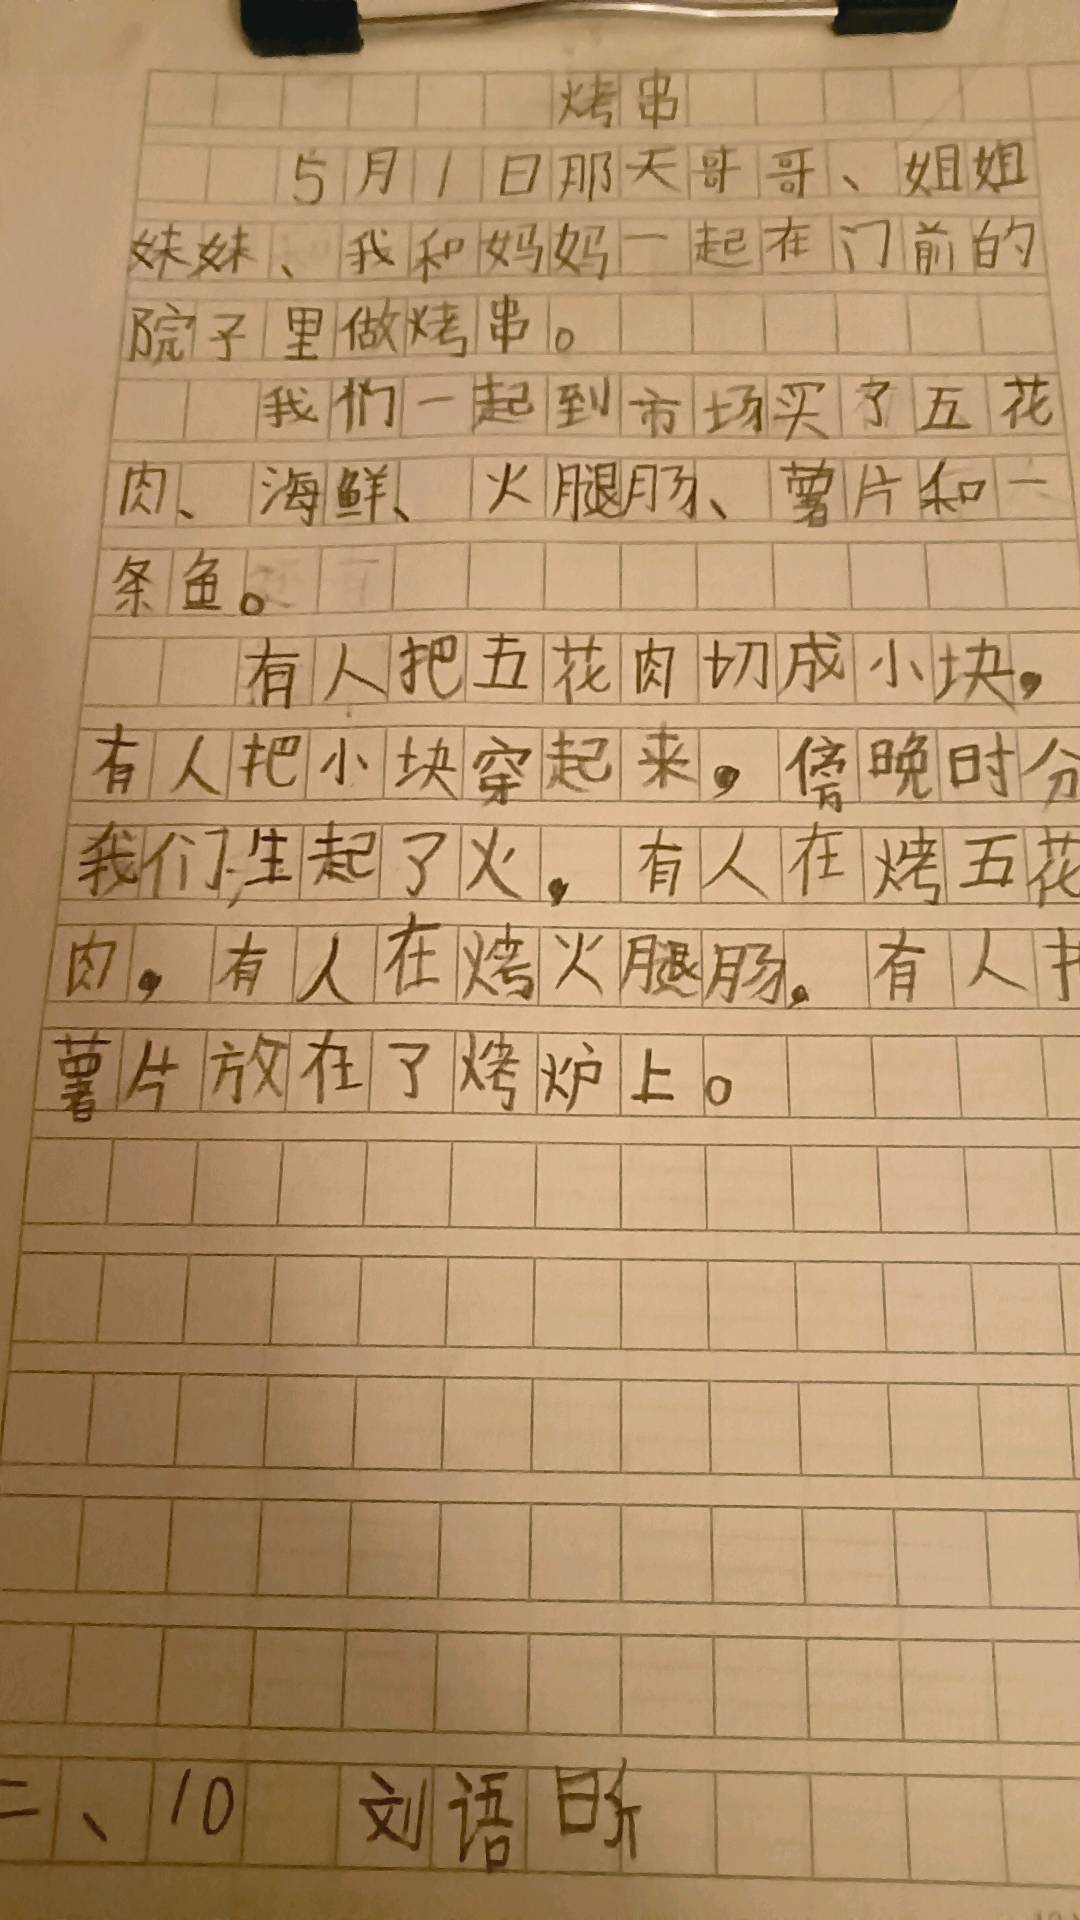 烤串
5月1日那天哥哥、姐姐
妹妹、我和妈妈一起在门前的
院子里做烤串。
我们一起到市场买了五花
肉、海鲜、火腿肠、薯片和一
条鱼。
有人把五花肉切成小块，
有人把小块穿起来，傍晚时分
我们生起了火，有人在烤五花
肉，有人在烤火腿肠，有人
薯片放在了烤炉上。
二、10 刘语昕